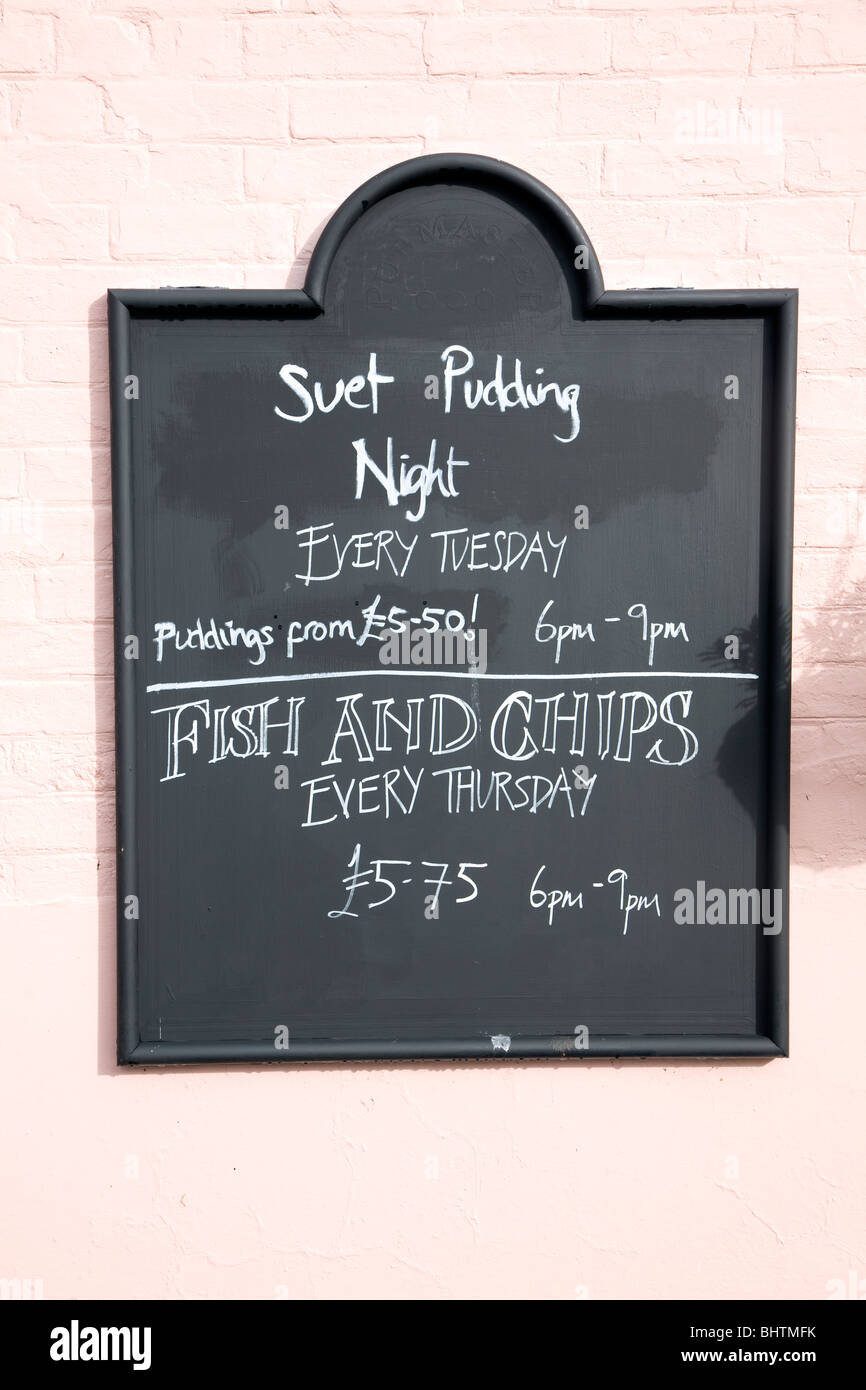 Suet Pudding
Night
EVERY TUESDAY
Puddings from £5-50! 6pm - 9pm
FISH AND CHIPS
EVERY THURSDAY
£5-75 6pm - 9pm
alamy
alamy
Image ID: BHTMFK
www.alamy.com